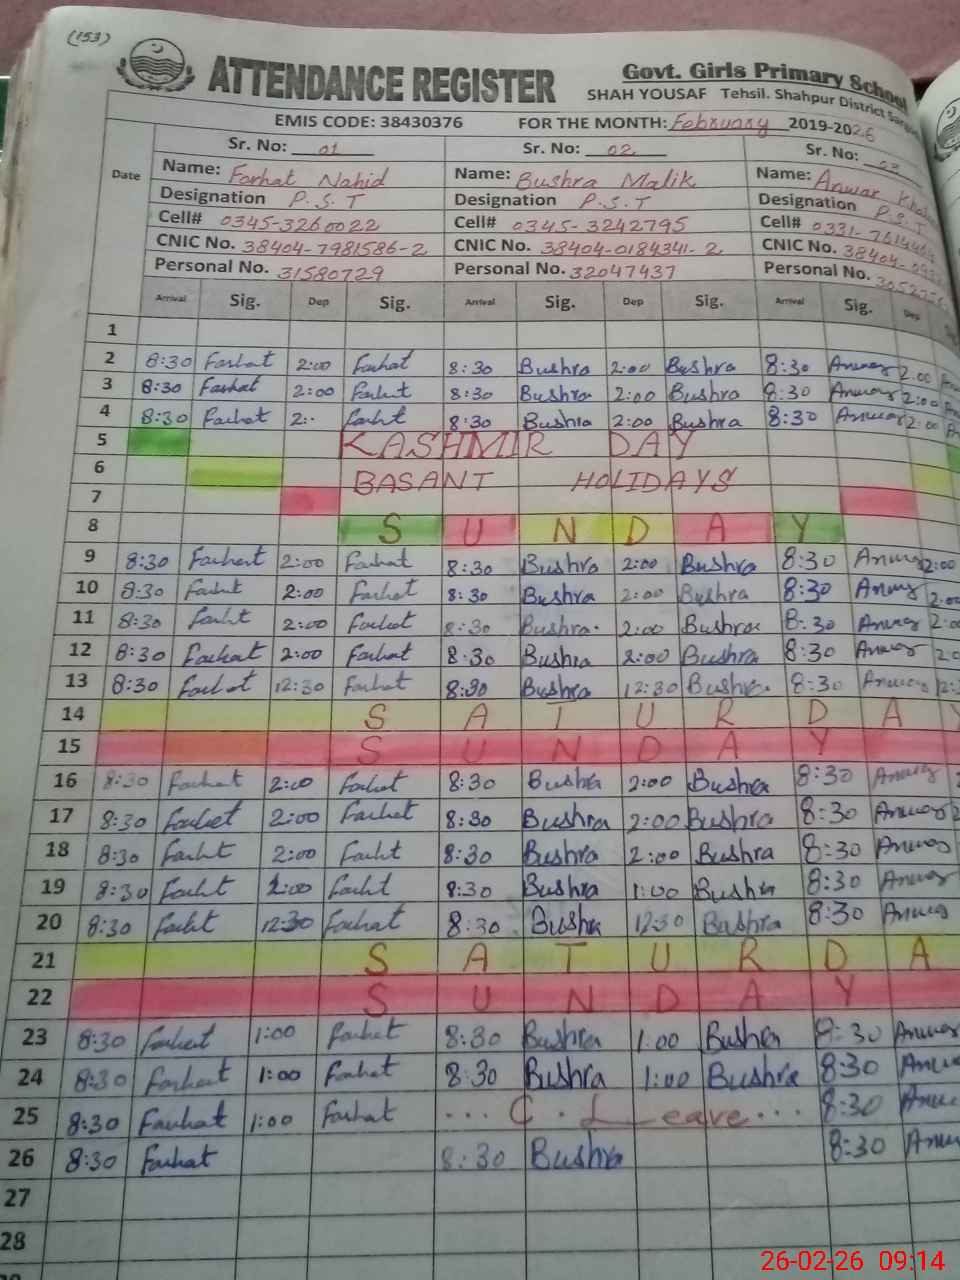 (153)
ATTENDANCE REGISTER
Govt. Girls Primary School
SHAH YOUSAF Tehsil. Shahpur District
EMIS CODE: 38430376 FOR THE MONTH: February 2019-2026
Date Sr. No: 01 Sr. No: 02 Sr. No: 03
Name: Farhat Nahid Name: Bushra Malik Name: Anwar
Designation P.S.T Designation P.S.T Designation P.S.T
Cell# 0345-3260022 Cell# 0345-3242795 Cell# 0331-
CNIC No. 38404-7981586-2 CNIC No. 38404-0184341-2 CNIC No. 38404-
Personal No. 31580729 Personal No. 32047437 Personal No.
Arrival Sig. Dep Sig. Arrival Sig. Dep Sig. Arrival Sig. Dep
1
2 8:30 Farhat 2:00 Farhat 8:30 Bushra 2:00 Bushra 8:30 Anwar 2:00
3 8:30 Farhat 2:00 Farhat 8:30 Bushra 2:00 Bushra 8:30 Anwar 2:00
4 8:30 Farhat 2:. Farht 8:30 Bushra 2:00 Bushra 8:30 Anwar 2:00
5 KASHMIR DAY
6 BASANT HOLIDAYS
7
8 SUNDAY
9 8:30 Farhat 2:00 Farhat 8:30 Bushra 2:00 Bushra 8:30 Anwar 2:00
10 8:30 Farht 2:00 Farhat 8:30 Bushra 2:00 Bushra 8:30 Anwar 2:00
11 8:30 Farht 2:00 Farhat 8:30 Bushra. 2:00 Bushra 8.30 Anwar 2:00
12 8:30 Farhat 2:00 Farhat 8:30 Bushra 2:00 Bushra 8:30 Anwar
13 8:30 Farhat 12:30 Farhat 8:30 Bushra 12:30 Bushra. 8:30 Anwar
14 SATURDAY
15 SUNDAY
16 8:30 Farhat 2:00 Farhat 8:30 Bushra 2:00 Bushra 8:30 Anwar
17 8:30 Farhat 2:00 Farhat 8:30 Bushra 2:00 Bushra 8:30 Anwar
18 8:30 Farht 2:00 Farht 8:30 Bushra 2:00 Bushra 8:30 Anwar
19 8:30 Farht Farht 8:30 Bushra 1:00 Bushra 8:30 Anwar
20 8:30 Farht 12:30 Farhat 8:30 Bushra 12:30 Bushra 8:30 Anwar
21 SATURDA
22 SUNDAY
23 8:30 Farhat 1:00 Farhat 8:30 Bushra 1:00 Bushra 8:30 Anwar
24 8:30 Farhat 1:00 Farhat 8:30 Bushra 1:00 Bushra 8:30 Anwar
25 8:30 Farhat 1:00 Farhat ... C. Leave... 8:30
26 8:30 Farhat 8:30 Bushra 8:30
27
28
26-02-26 09:14